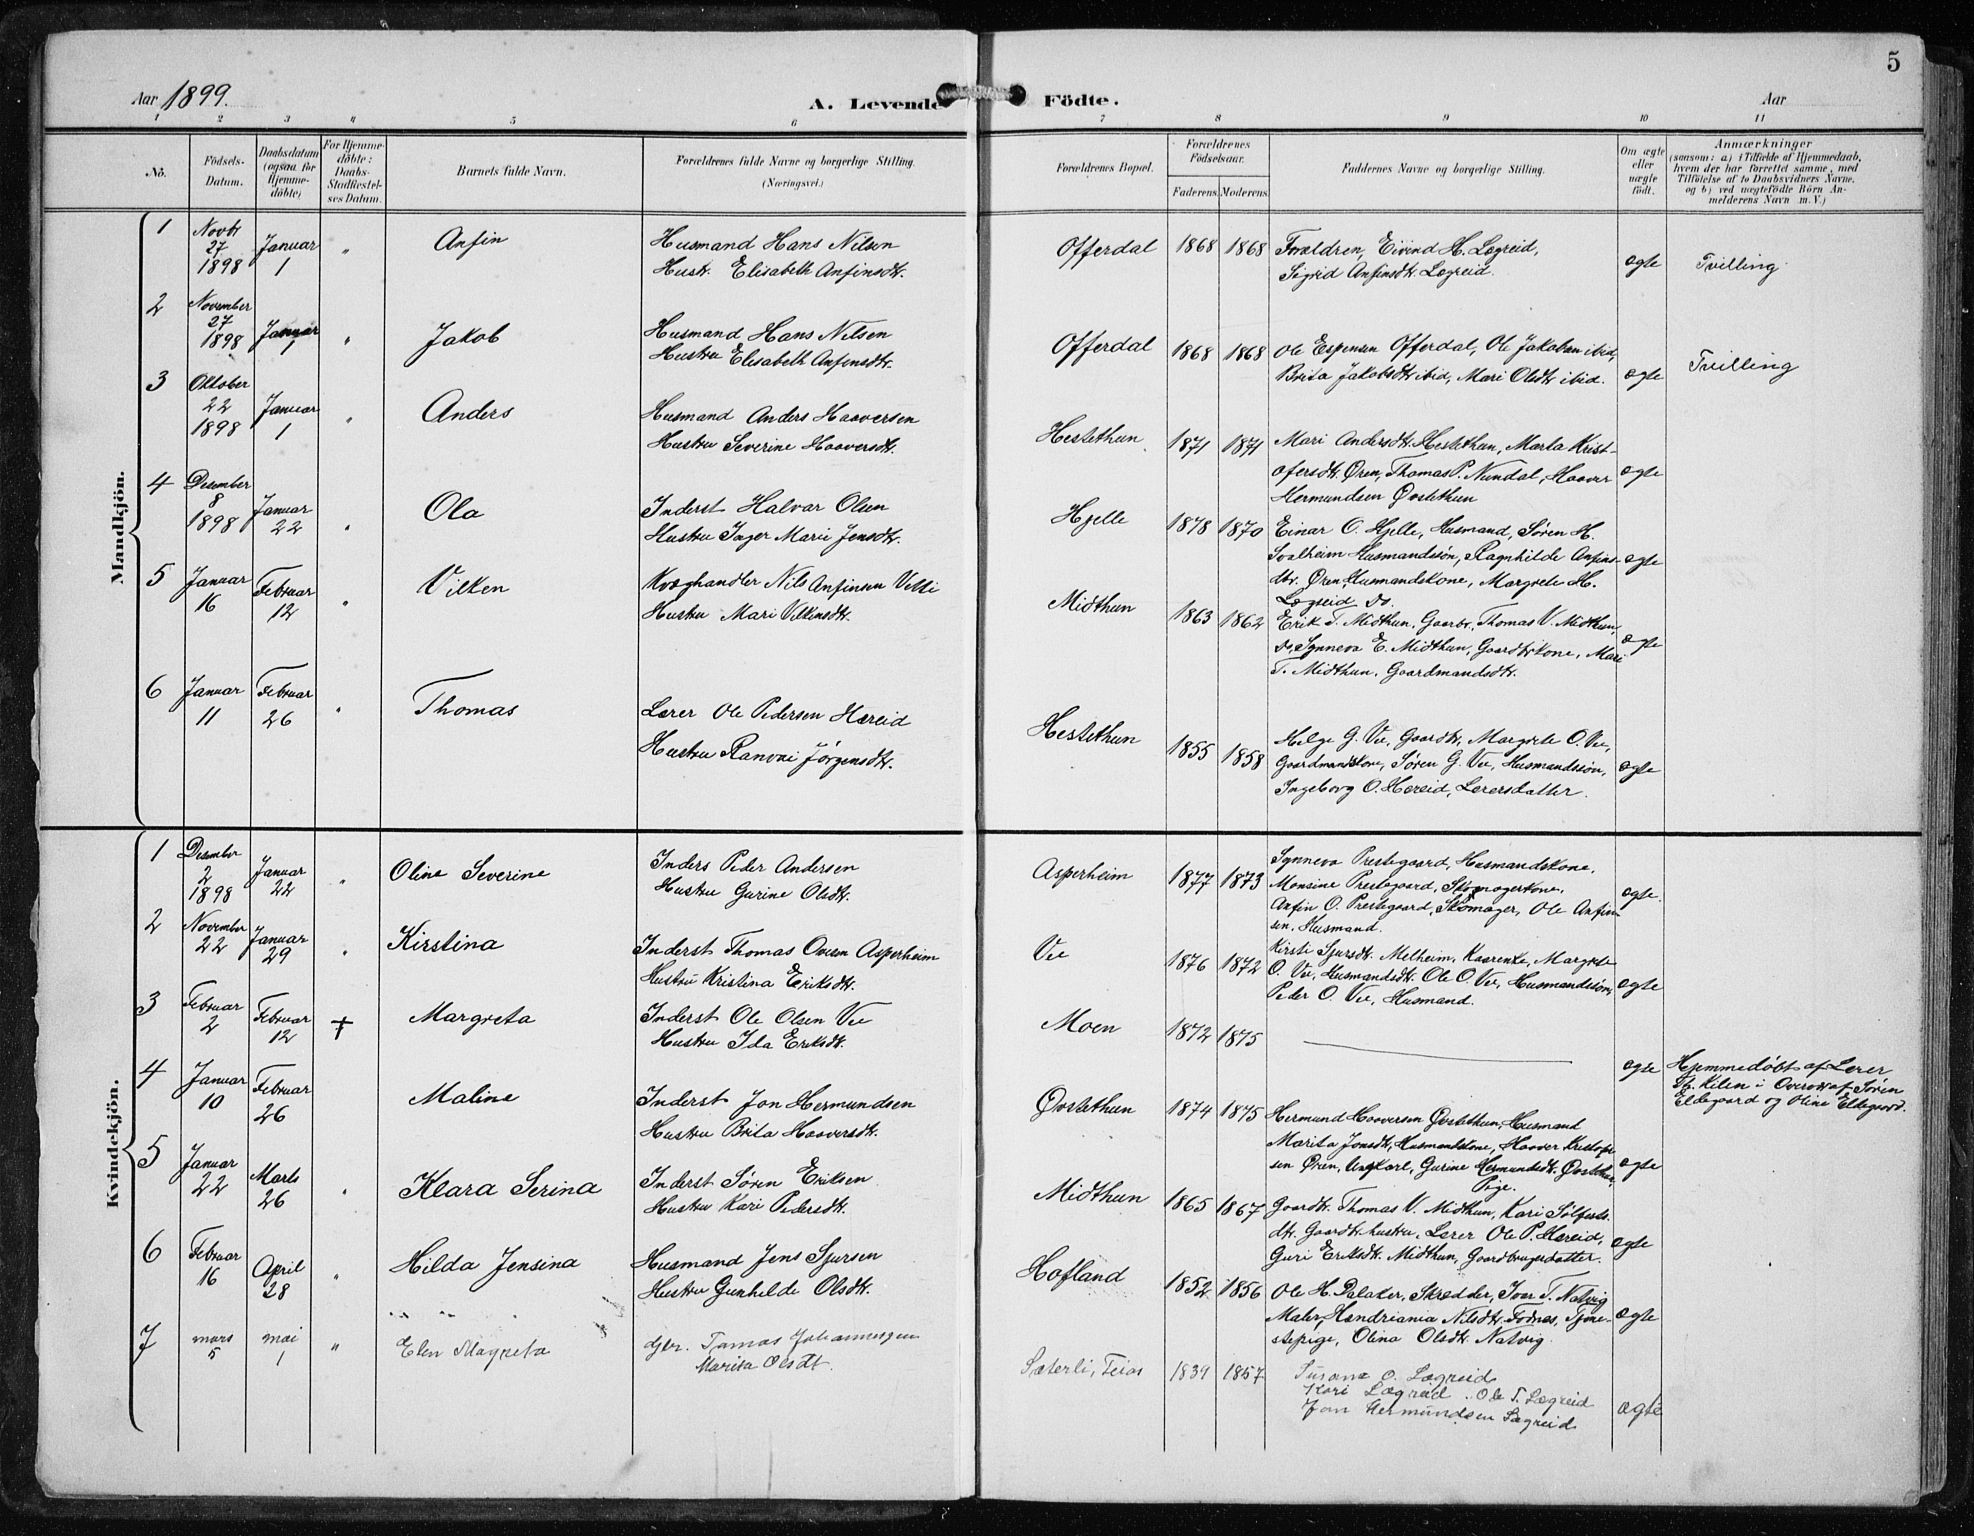 5
Aar 1899.
A. Levende Födte.
Aar
1 2 3 4 5 6 7 8 9 10 11
No.
Födsels-
Datum.
Daabsdatum
(ogsaa for
Hjemme-
döbte)
For Hjemme-
döbte:
Daabs-
Stadfæstel-
ses Datum.
Barnets fulde Navn.
Forældrenes fulde Navne og borgerlige Stilling.
(Næringsvei.)
Forældrenes Bopæl.
Forældrenes
Födselsaar.
Faderens. Moderens.
Faddernes Navne og borgerlige Stilling.
Om ægte
eller
uægte
födt.
Anmærkninger
(saasom: a) i Tilfælde af Hjemmedaab,
hvem der har forrettet samme, med
Tilföielse af to Daabsvidners Navne,
og b) ved uægtefödte Börn An-
melderens Navn m. V.)
Mandkjön.
1 Novbr 27 1898 Januar 1 " Anfin
Husmand Hans Nilsen
Hustr. Elisabeth Anfinsdtr.
Offerdal 1868 1868
Forældren, Eivind H. Lægreid,
Sigrid Anfinsdt. Lægreid.
ægte Tvilling
2 November 27 1898 Januar 1 " Jakob
Husmand Hans Nilsen
Hustru Elisabeth Anfinsdtr.
Offerdal 1868 1868
Ole Espensen Offerdal, Ole Jakobsen ibid,
Brita Jakobsdtr ibid, Mari Olsdtr ibid.
ægte Tvilling
3 Oktober 22 1898 Januar 1 " Anders
Husmand Anders Haaversen
Hustru Severine Haaversdtr.
Hestethun 1871 1871
Mari Andersdt. Hestethun, Marta Krist-
ofersdtr. Øren, Thomas P. Nundal, Haaver
Hermundsen Øvstethun
ægte
4 Desember 8 1898 Januar 22 " Ola
Inderst Halvar Olsen
Hustru Inger Marie Jensdtr.
Hjelle 1878 1870
Einar O. Hjelle, Husmand, Søren H.
Svalheim Husmandssøn, Ragnhilde Anfins-
dtr. Øren, Husmandskone, Margrete H.
Lægreid do.
ægte
5 Januar 16 Februar 12 " Vilken
Kvæghandler Nils Anfinsen Vetti
Hustru Mari Vilkensdtr.
Midthun 1863 1862
Erik T. Midthun, Gaardbr, Thomas V. Midthun,
do, Synneva E. Midthun, Gaardbrkone, Mari
T. Midthun, Gaardmandsdtr.
ægte
6 Januar 11 Februar 26 " Thomas
Lærer Ole Pedersen Hæreid
Hustru Ranvei Jørgensdtr.
Hestethun 1855 1858
Helge G. Ve, Gaardbr, Margrete O. Ve,
Gaardmandskone, Søren G. Ve, Husmandssøn,
Ingeborg O. Hereid, Lærersdatter.
ægte
Kvindekjön.
1 Desember 2 1898 Januar 22 " Oline Severine
Inders Peder Andersen
Hustru Gurine Olsdtr.
Asperheim 1877 1873
Synneva Prestegaard, Husmandskone,
Monsine Prestegaard, Skomagerkone,
Anfin O. Prestegaard, Skomager, Ole Anfin-
sen, Husmand.
ægte
2 November 22 Januar 29 " Kirstina
Inderst Thomas Ovesen Asperheim
Hustru Kristina Eriksdtr.
Ve 1876 1872
Kirsti Sjursdt. Melheim, Kaarenke, Margrete
O. Ve, Husmandsdt. Ole O. Ve, Husmandssøn,
Peder O. Ve, Husmand.
ægte
3 Februar 2 Februar 12 † Margreta
Inderst Ole Olsen Ve
Hustru Ida Eriksdtr.
Moen 1872 1875
ægte
Hjemmedøbt af Lærer
Kilen i Overvær af Søren
Eldegaard og Oline Eldegaard.
4 Januar 10 Februar 26 Maline
Inderst Jon Hermundsen
Hustru Brita Haaversdtr.
Øvstethun 1874 1875
Hermund Haaversen Øvstethun, Husmand
Marita Jonsdt, Husmandskone, Haaver Kristofer-
sen Øren, Ungkarl, Gurine Hermundsdt. Øvstethun,
Pige.
ægte
5 Januar 22 Marts 26 " Klara Serina
Inderst Søren Eriksen
Hustru Kari Pedersdtr.
Midthun 1865 1867
Gaardbr. Thomas V. Midthun, Kari Sølfests-
dtr. Gaardbr. hustru, Lærer Ole P. Hæreid,
Guri Eriksdt. Midthun, Gaardbrugerdatter.
ægte
6 Februar 16 April 28 " Hilda Jensina
Husmand Jens Sjursen
Hustru Gunhilde Olsdtr.
Hofland 1852 1856
Ole H. Dalaker, Skrædder, Iver T. Natvig
Maler, Hendriania Nilsdt. Fodnes, Tjene-
stepige, Olina Olsdt. Natvig.
ægte
7 mars 5 mai 1 " Elen Magreta
gbr. Tomas Johannesgen
Marita Olsdt.
Sæterli, Feios 1839 1857
Susane O. Lægreid
Kari Lægreid, Ole T. Lægreid
Jon Hermundsen Lægreid
ægte